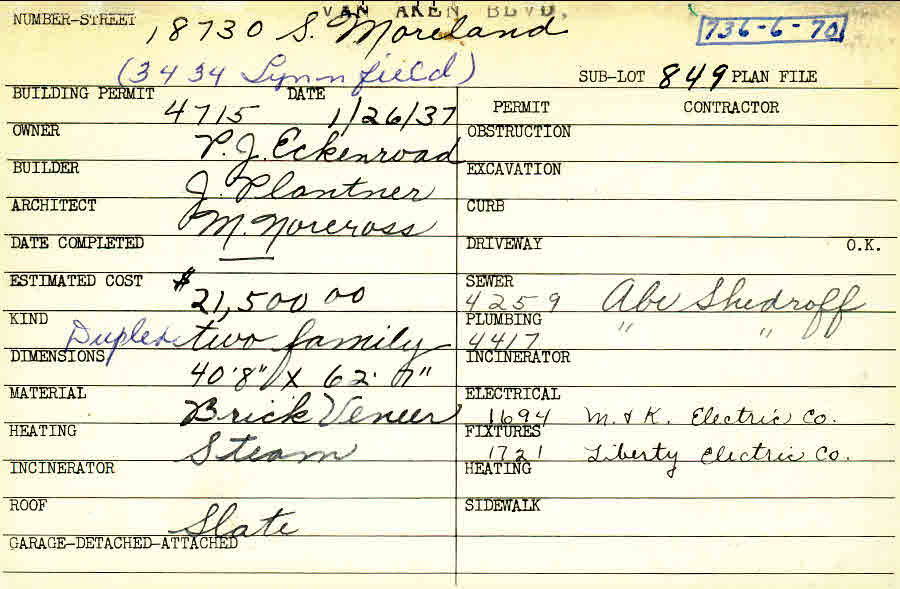 VAN AKEN BLVD.
NUMBER-STREET 18730 S. Moreland 736-6-70
(3434 Lynnfield) SUB-LOT 849 PLAN FILE
BUILDING PERMIT 4715 DATE 1/26/37 PERMIT CONTRACTOR
OWNER P.J. Eckenroad OBSTRUCTION
BUILDER J. Plantner EXCAVATION
ARCHITECT M. Norcross CURB
DATE COMPLETED — DRIVEWAY O.K.
ESTIMATED COST $21,500 00 SEWER 4259 Abe Shedroff
KIND Duplex two family PLUMBING 4417 " "
DIMENSIONS 40'8" X 62' 7" INCINERATOR
MATERIAL Brick Veneer ELECTRICAL 1694 M. & K. Electric Co.
HEATING Steam FIXTURES 1721 Liberty Electric Co.
INCINERATOR HEATING
ROOF Slate SIDEWALK
GARAGE-DETACHED-ATTACHED